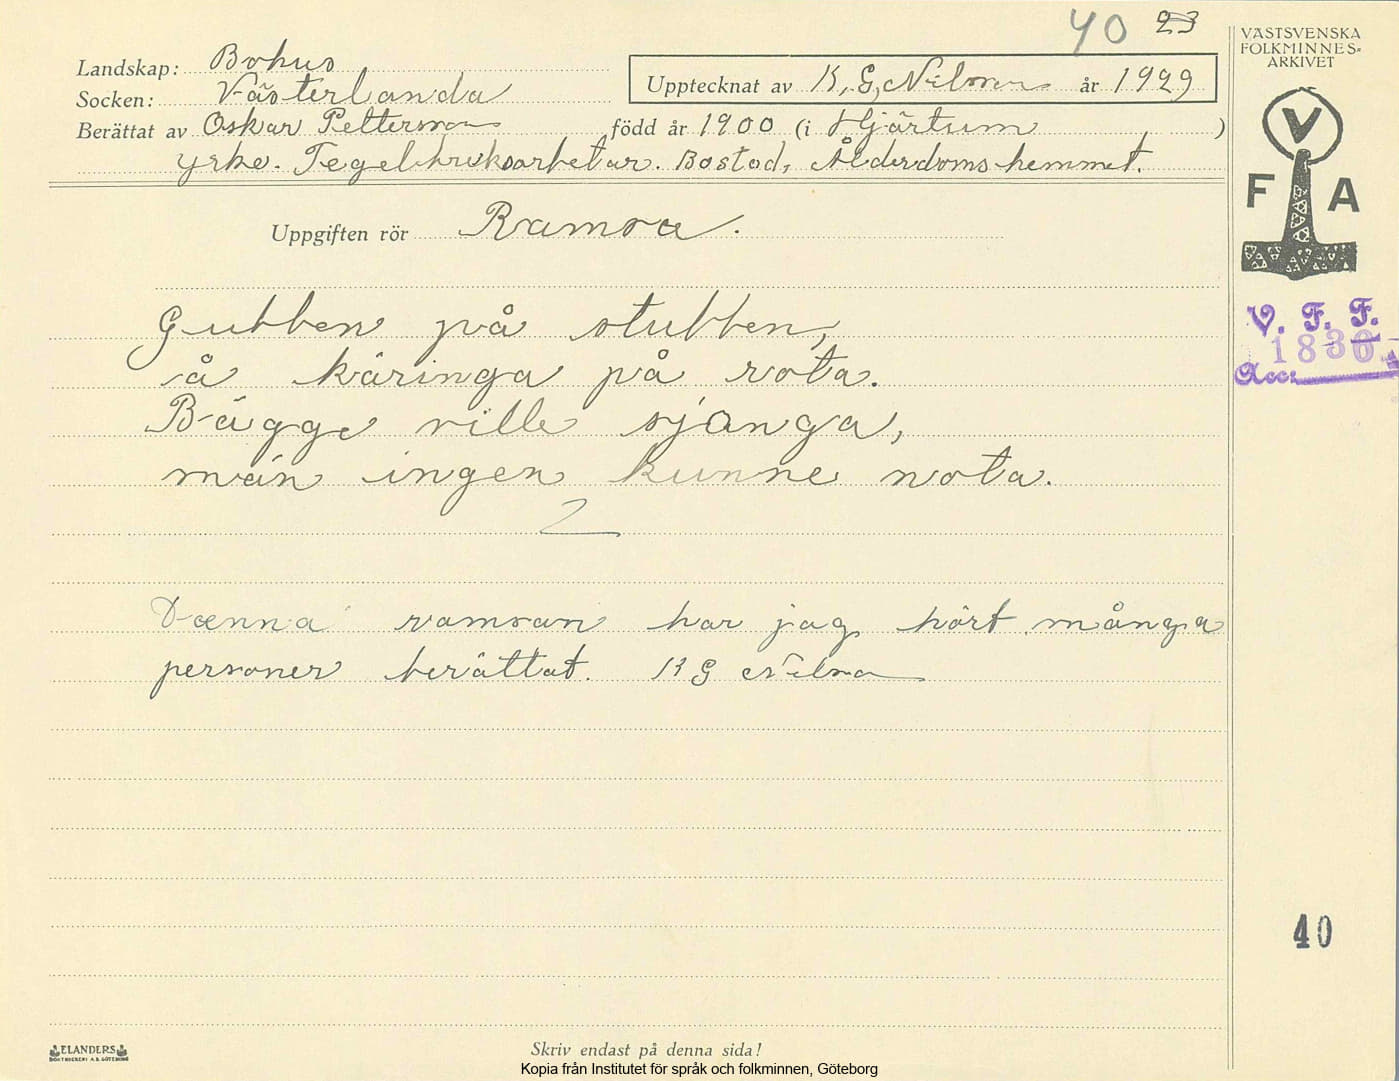 40 23
Landskap: Bohus
Socken: Västerlanda
Upptecknat av K, G, Nilsson år 1929
Berättat av Oskar Pettersson född år 1900 (i Hjärtum )
yrke. Tegelbruksarbetar. Bostad, Ålderdomshemmet.
Uppgiften rör Ramsa.
Gubben på stubben,
å käringa på rota.
Bägge ville sjonga,
män ingen kunne nota.
Dænna ramsan har jag hört många
personer berättat. K G Nilsson
VÄSTSVENSKA
FOLKMINNES-
ARKIVET
V
F A
V. F. F.
1830
Acc:
40
ELANDERS
BOKTRYCKERI A.B. GÖTEBORG
Skriv endast på denna sida!
Kopia från Institutet för språk och folkminnen, Göteborg